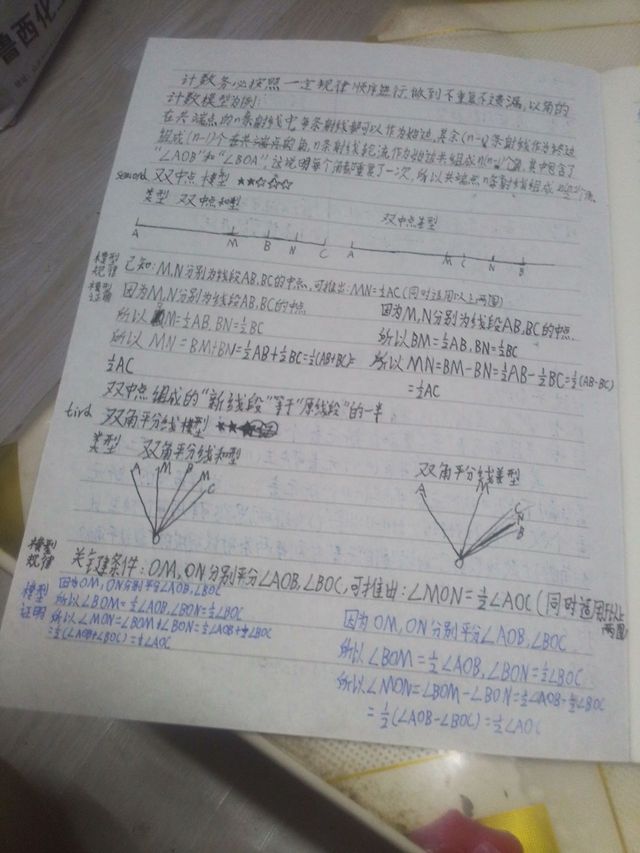 鲁西化
计数务必按照一定规律顺序进行,做到不重复不遗漏,以角的
计数模型为例:
在共端点的n条射线中,每条射线都可以作为始边,其余(n-1)条射线作为终边
组成(n-1)个在共端点的角,n条射线轮流作为始边共组成n(n-1)个角,其中包含了
"∠AOB"和"∠BOA",这说明每个角都重复了一次,所以共端点n条射线组成
second 双中点模型 ★★☆☆☆
类型 双中点和型 双中点差型
A M B N C A M C N B
模型规律 已知:M,N分别为线段AB,BC的中点,可推出:MN=½AC(同时适用以上两图)
模型证明 因为M,N分别为线段AB,BC的中点
所以BM=½AB,BN=½BC
所以 MN=BM+BN=½AB+½BC=½(AB+BC)=
½AC
因为M,N分别为线段AB,BC的中点
所以BM=½AB,BN=½BC
所以MN=BM-BN=½AB-½BC=½(AB-BC)
=½AC
双中点组成的"新线段"等于"原线段"的一半
tird 双角平分线模型 ★★
类型 双角平分线和型 双角平分线差型
A M B M C
O
A M C N B
O
模型规律 关键条件:OM,ON分别平分∠AOB,∠BOC,可推出:∠MON=½∠AOC(同时适用于以上
两图)
模型证明 因为OM,ON分别平分∠AOB,∠BOC
所以∠BOM=½∠AOB,∠BON=½∠BOC
所以∠MON=∠BOM+∠BON=½∠AOB+½∠BOC
=½(∠AOB+∠BOC)=½∠AOC
因为OM,ON分别平分∠AOB,∠BOC
所以∠BOM=½∠AOB,∠BON=½∠BOC
所以∠MON=∠BOM-∠BON=½∠AOB-½∠BOC
=½(∠AOB-∠BOC)=½∠AOC